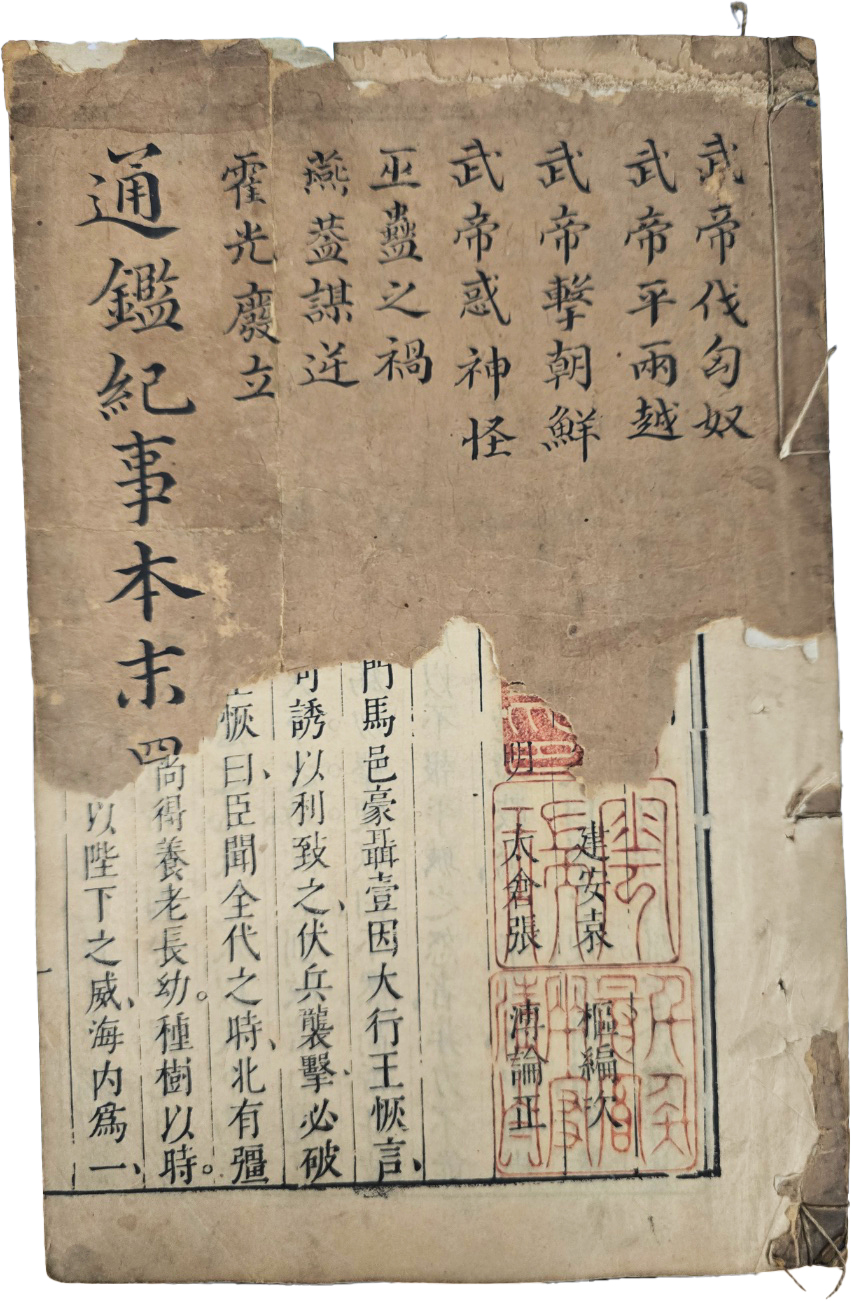 武帝伐匈奴
武帝平兩越
武帝擊朝鮮
武帝惑神怪
巫蠱之禍
燕蓋謀逆
霍光廢立
通鑑紀事本末 四
建安袁 樞編次
明 太倉張 溥論正
門馬邑豪聶壹因大行王恢言、
可誘以利致之、伏兵襲擊必破
恢曰、臣聞全代之時、北有彊
尚得養老長幼。種樹以時。
以陛下之威、海内爲一、